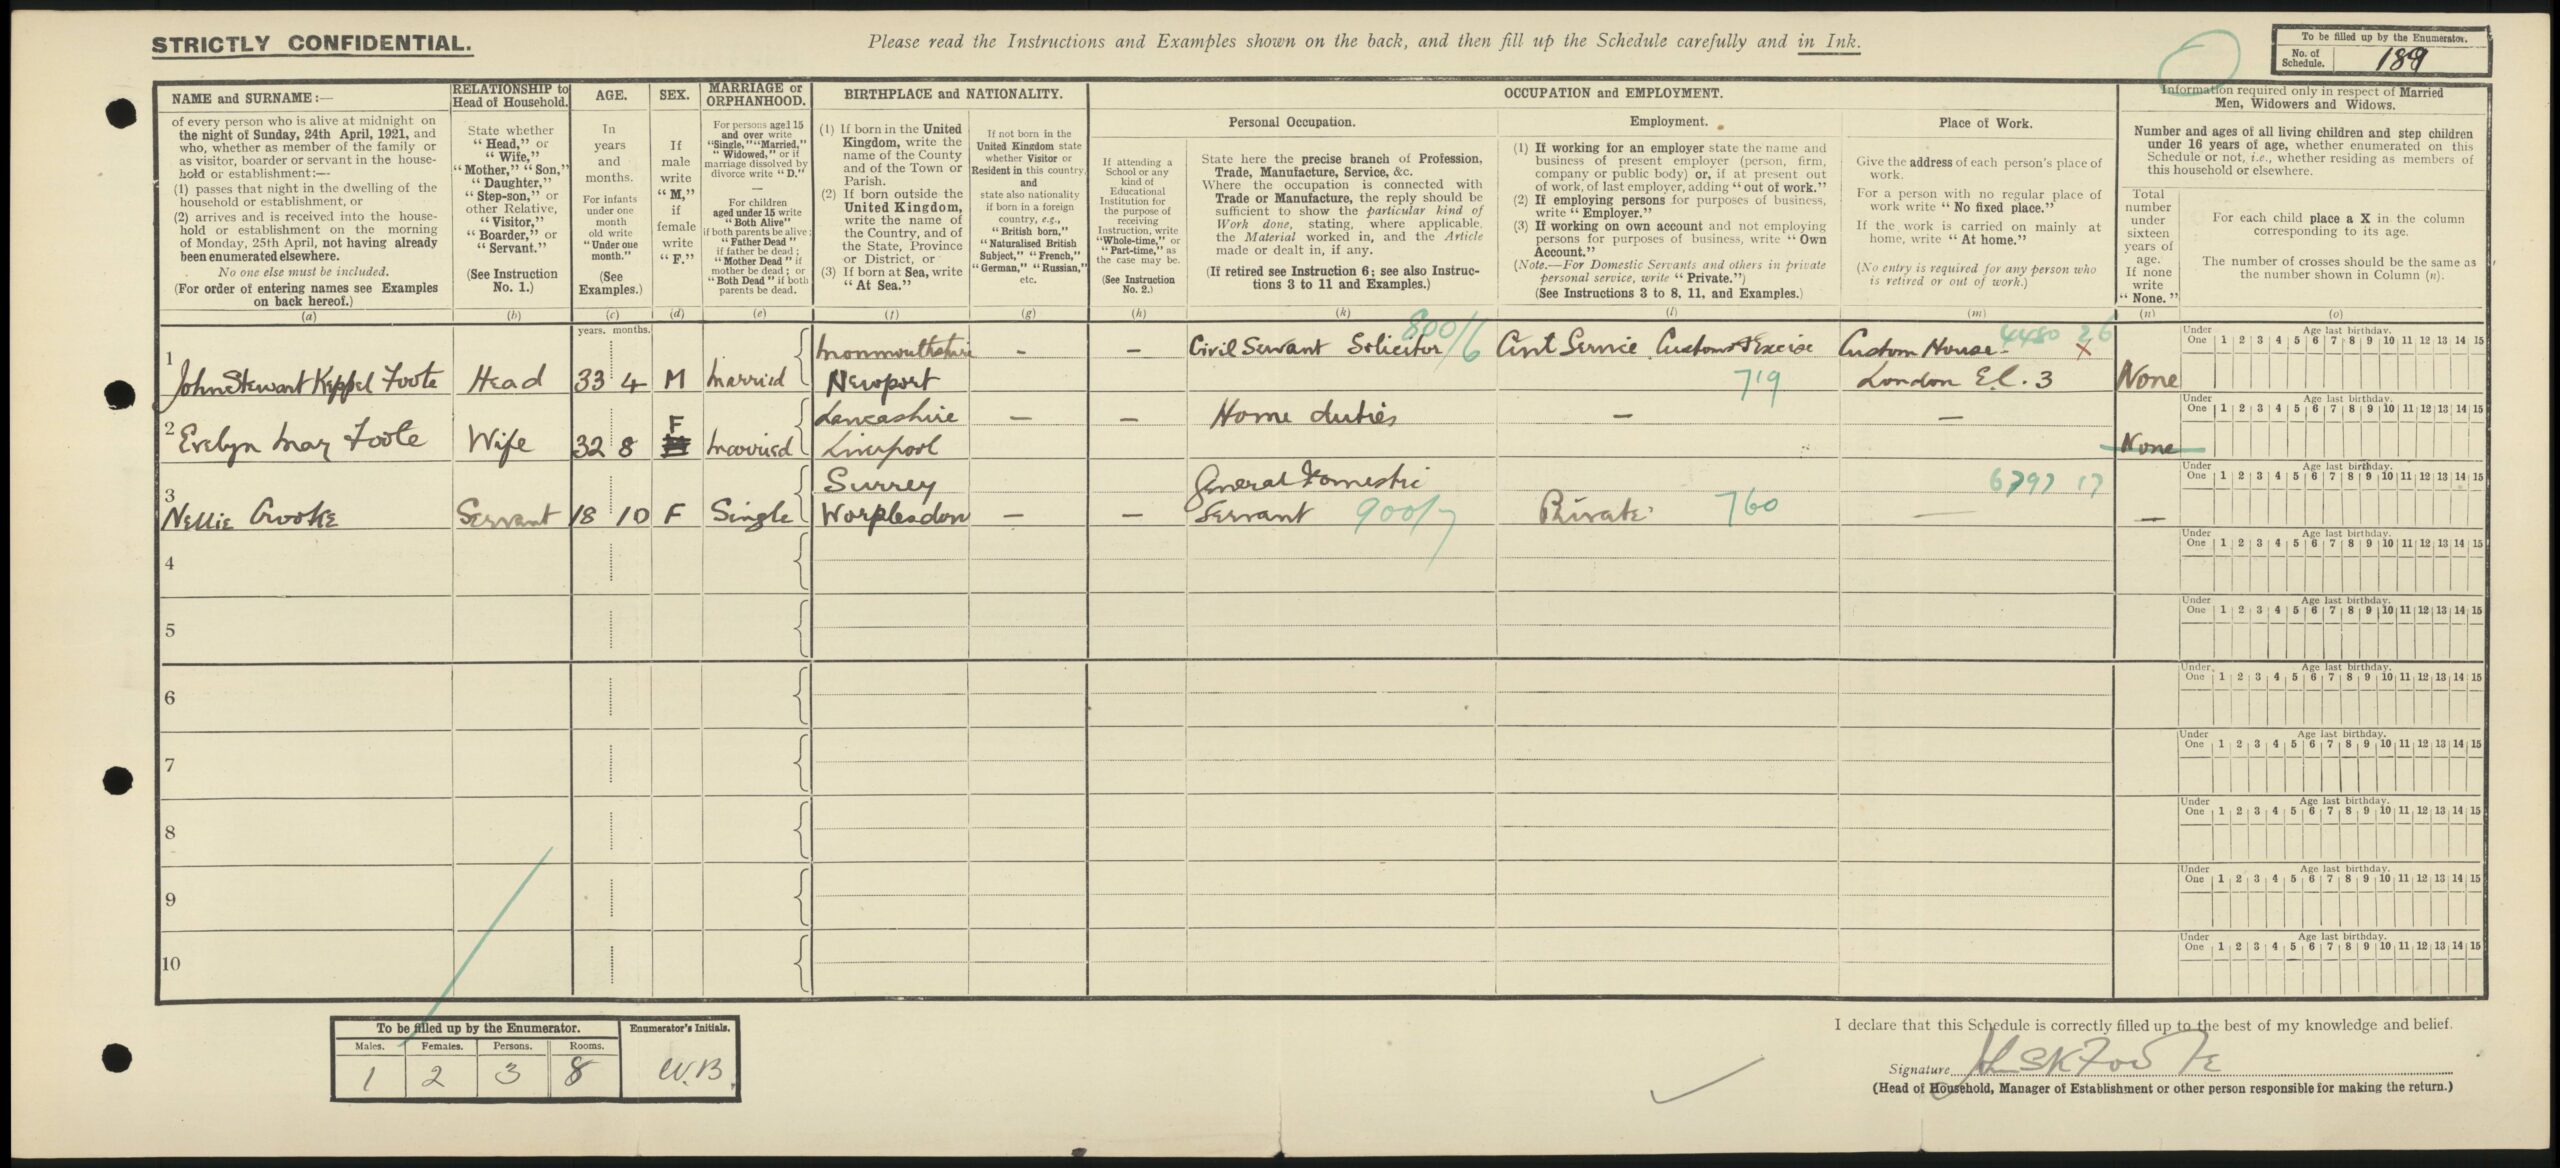 STRICTLY CONFIDENTIAL.
Please read the Instructions and Examples shown on the back, and then fill up the Schedule carefully and in Ink.
To be filled up by the Enumerator.
No. of Schedule. 189
NAME and SURNAME:—
of every person who is alive at midnight on
the night of Sunday, 24th April, 1921, and
who, whether as member of the family or
as visitor, boarder or servant in the house-
hold or establishment:—
(1) passes that night in the dwelling of the
household or establishment, or
(2) arrives and is received into the house-
hold or establishment on the morning
of Monday, 25th April, not having already
been enumerated elsewhere.
No one else must be included.
(For order of entering names see Examples
on back hereof.)
(a)
RELATIONSHIP to
Head of Household.
State whether
"Head," or
"Wife,"
"Mother," "Son,"
"Daughter,"
"Step-son," or
other Relative,
"Visitor,"
"Boarder," or
"Servant."
(See Instruction
No. 1.)
(b)
AGE.
In
years
and
months.
For infants
under one
month
old write
"Under one
month."
(See
Examples.)
(c)
SEX.
If
male
write
"M,"
if
female
write
"F."
(d)
MARRIAGE or
ORPHANHOOD.
For persons aged 15
and over write
"Single," "Married,"
"Widowed," or if
marriage dissolved by
divorce write "D."
—
For children
aged under 15 write
"Both Alive"
if both parents be alive;
"Father Dead"
if father be dead;
"Mother Dead" if
mother be dead; or
"Both Dead" if both
parents be dead.
(e)
BIRTHPLACE and NATIONALITY.
(1) If born in the United
Kingdom, write the
name of the County
and of the Town or
Parish.
(2) If born outside the
United Kingdom,
write the name of
the Country, and of
the State, Province
or District, or
(3) If born at Sea, write
"At Sea."
(f)
If not born in the
United Kingdom state
whether Visitor or
Resident in this country,
and
state also nationality
if born in a foreign
country, e.g.,
"British born,"
"Naturalised British
Subject," "French,"
"German," "Russian,"
etc.
(g)
OCCUPATION and EMPLOYMENT.
If attending a
School or any
kind of
Educational
Institution for
the purpose of
receiving
Instruction, write
"Whole-time," or
"Part-time," as
the case may be.
(See Instruction
No. 2.)
(h)
Personal Occupation.
State here the precise branch of Profession,
Trade, Manufacture, Service, &c.
Where the occupation is connected with
Trade or Manufacture, the reply should be
sufficient to show the particular kind of
Work done, stating, where applicable,
the Material worked in, and the Article
made or dealt in, if any.
(If retired see Instruction 6; see also Instruc-
tions 3 to 11 and Examples.)
(k)
Employment.
(1) If working for an employer state the name and
business of present employer (person, firm,
company or public body) or, if at present out
of work, of last employer, adding "out of work."
(2) If employing persons for purposes of business,
write "Employer."
(3) If working on own account and not employing
persons for purposes of business, write "Own
Account."
(Note.—For Domestic Servants and others in private
personal service, write "Private.")
(See Instructions 3 to 8, 11, and Examples.)
(l)
Place of Work.
Give the address of each person's place of
work.
For a person with no regular place of
work write "No fixed place."
If the work is carried on mainly at
home, write "At home."
(No entry is required for any person who
is retired or out of work.)
(m)
Information required only in respect of Married
Men, Widowers and Widows.
Number and ages of all living children and step children
under 16 years of age, whether enumerated on this
Schedule or not, i.e., whether residing as members of
this household or elsewhere.
Total
number
under
sixteen
years of
age.
If none
write
"None."
(n)
For each child place a X in the column
corresponding to its age.
The number of crosses should be the same as
the number shown in Column (n).
(o)
years. months.
1 John Stewart Keppel Foote Head 33 4 M Married Monmouthshire Newport — — Civil Servant Solicitor 800/6 Civil Service Customs & Excise 719 Custom House London E.C. 3 4480 26 X None
Under One Age last birthday. 1 2 3 4 5 6 7 8 9 10 11 12 13 14 15
2 Evelyn May Foote Wife 32 8 F Married Lancashire Liverpool — — Home duties — — None
Under One Age last birthday. 1 2 3 4 5 6 7 8 9 10 11 12 13 14 15
3 Nellie Crooke Servant 18 10 F Single Surrey Worplesdon — — General Domestic Servant 900/7 Private 760 — 6797 17 —
Under One Age last birthday. 1 2 3 4 5 6 7 8 9 10 11 12 13 14 15
4
Under One Age last birthday. 1 2 3 4 5 6 7 8 9 10 11 12 13 14 15
5
Under One Age last birthday. 1 2 3 4 5 6 7 8 9 10 11 12 13 14 15
6
Under One Age last birthday. 1 2 3 4 5 6 7 8 9 10 11 12 13 14 15
7
Under One Age last birthday. 1 2 3 4 5 6 7 8 9 10 11 12 13 14 15
8
Under One Age last birthday. 1 2 3 4 5 6 7 8 9 10 11 12 13 14 15
9
Under One Age last birthday. 1 2 3 4 5 6 7 8 9 10 11 12 13 14 15
10
Under One Age last birthday. 1 2 3 4 5 6 7 8 9 10 11 12 13 14 15
To be filled up by the Enumerator.
Males. Females. Persons. Rooms.
1 2 3 8
Enumerator's Initials.
W.B.
I declare that this Schedule is correctly filled up to the best of my knowledge and belief.
Signature J S K Foote
(Head of Household, Manager of Establishment or other person responsible for making the return.)